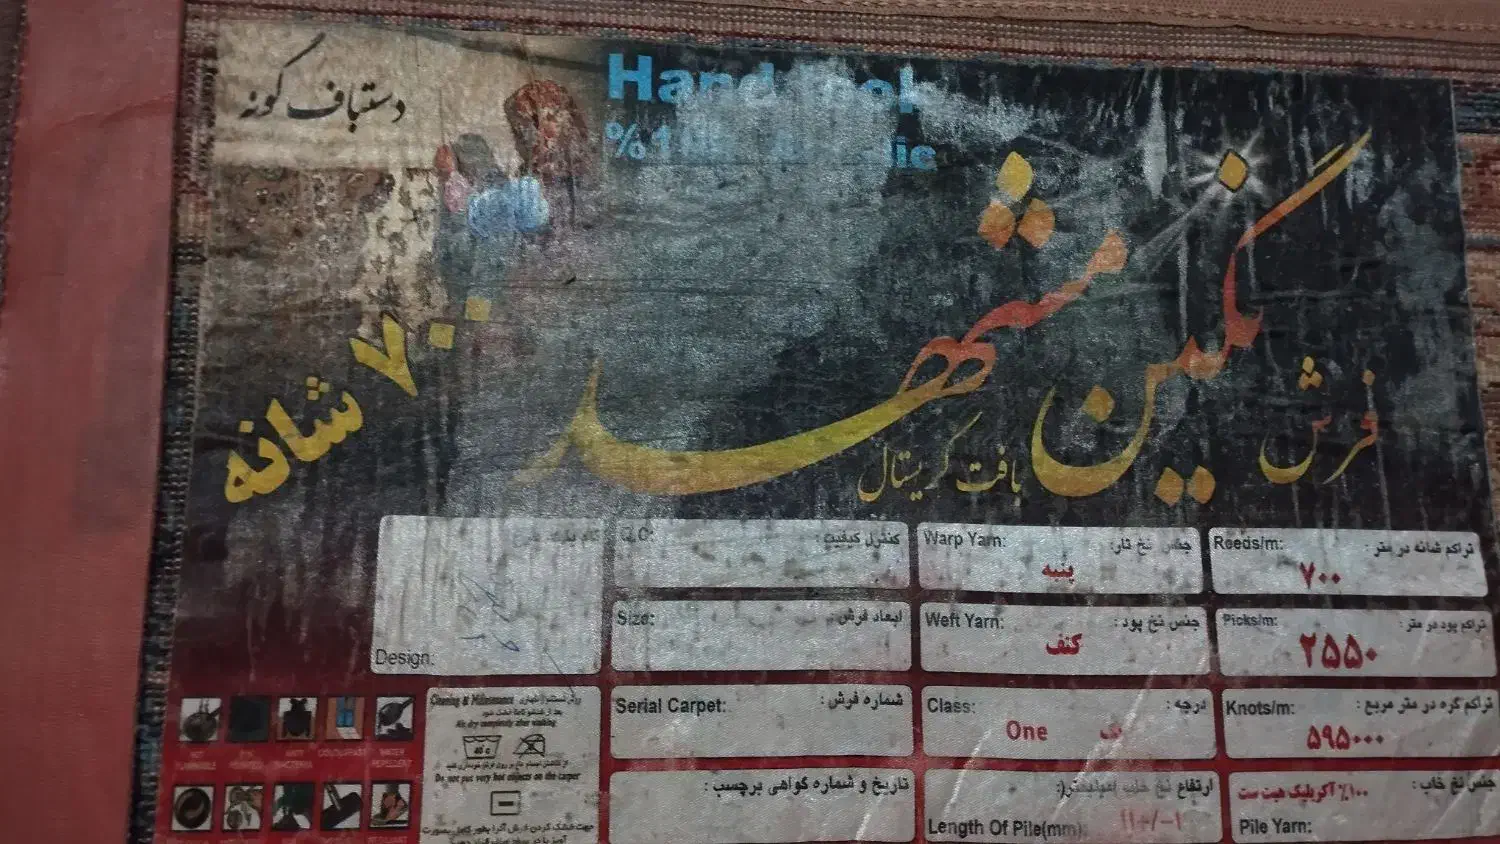 دستباف گونه
Hand Look
%100
نگین مشهد
فرش
بافت کریستال
۷۰۰ شانه
تراکم شانه در متر :
Reeds/m:
۷۰۰
جنس نخ تار:
Warp Yarn:
پنبه
کنترل کیفیت :
Q.C:
Design:
تراکم پود در متر :
Picks/m:
۲۵۵۰
جنس نخ پود :
Weft Yarn:
کنف
ابعاد فرش :
Size:
تراکم گره در متر مربع :
Knots/m:
۵۹۵۰۰۰
درجه :
Class:
One
یک
شماره فرش :
Serial Carpet:
جنس نخ خاب :
۱۰۰٪ آکریلیک هیت ست
Pile Yarn:
ارتفاع نخ خاب
Length Of Pile(mm):
۱۱+/-۱
تاریخ و شماره گواهی برچسب :
Cleaning & Maintenance
Air dry completely after washing
40 c
Do not put very hot objects on the carpet
ANTI
BACTERIA
WATER
REPELENT